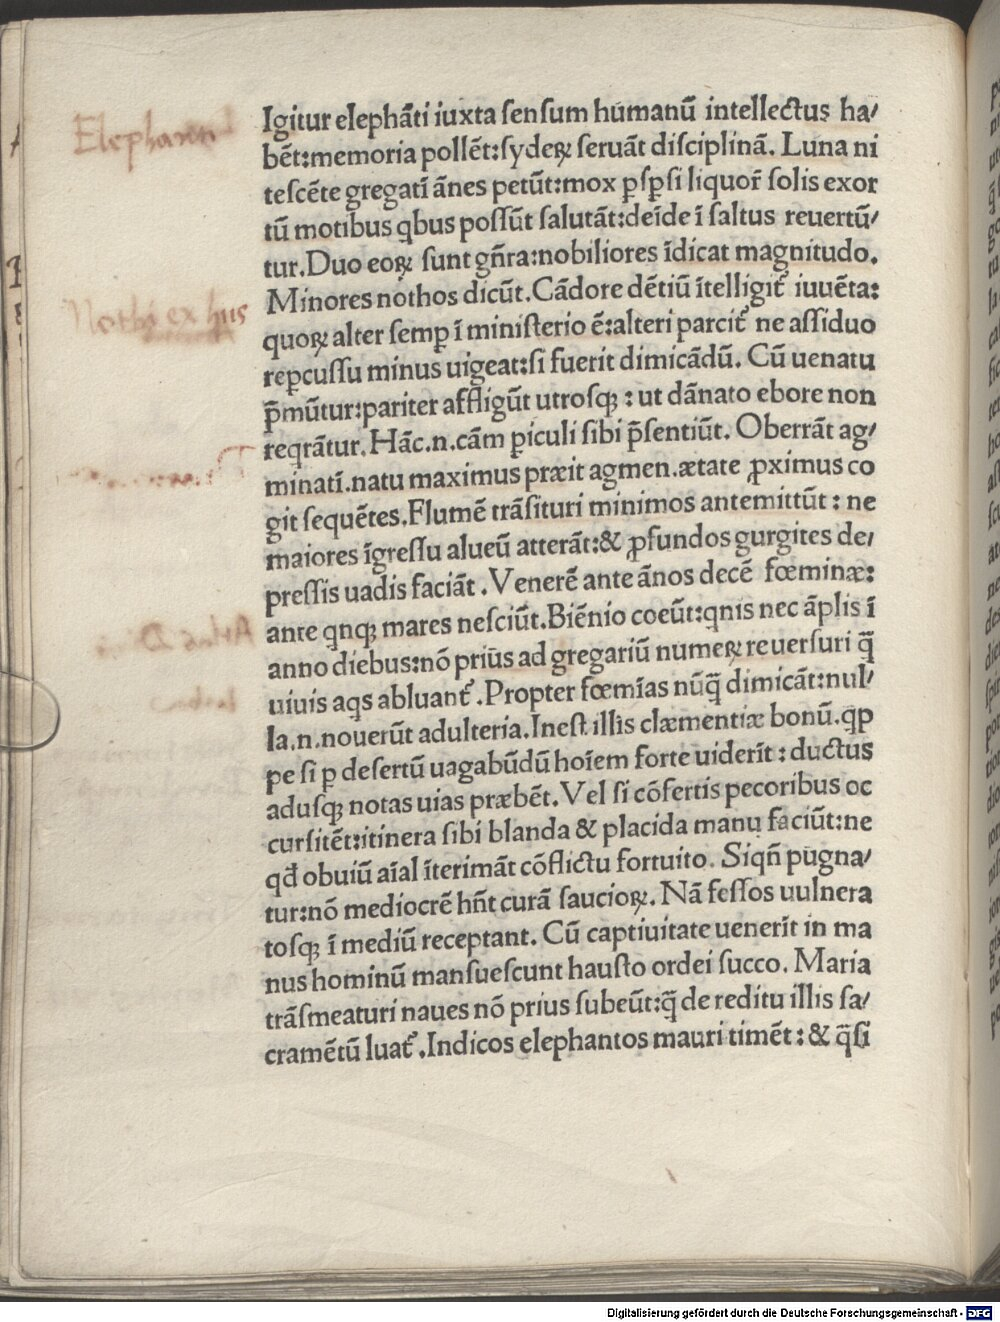 Elephanti
Igitur elephãti iuxta ſenſum humanũ intellectus ha/
bẽt:memoria pollẽt:ſydeꝝ ſeruãt diſciplinã. Luna ni
teſcẽte gregatĩ ãnes petũt:mox ꝑſꝑſi liquor̃ ſolis exor
tũ motibus qbus poſſũt ſalutãt:deĩde ĩ ſaltus reuertũ/
tur.Duo eoꝝ ſunt gñra:nobiliores ĩdicat magnitudo.
Nothi ex hiis
Minores nothos dicũt.Cãdore dẽtiũ ĩtelligit̃ iuuẽta:
quoꝝ alter ſemꝑ ĩ miniſterio ẽ:alteri parcit̃ ne aſſiduo
reꝑcuſſu minus uigeat:ſi fuerit dimicãdũ. Cũ uenatu
p̃mũtur:pariter affligũt utroſqꝫ : ut dãnato ebore non
reqrãtur. Hãc.n.cãm ꝑiculi ſibi p̃ſentiũt. Oberrãt ag/
minatĩ.natu maximus præit agmen.ætate ꝓximus co
git ſequẽtes.Flumẽ trãſituri minimos antemittũt : ne
maiores ĩgreſſu alueũ atterãt:& ꝓfundos gurgites de/
preſſis uadis faciãt . Venerẽ ante ãnos decẽ fœminæ:
ante qnqꝫ mares neſciũt.Biẽnio coeũt:qnis nec ãplis ĩ
anno diebus:nõ prius ad gregariũ numeꝝ reuerſuri q̃
uiuis aqs abluant̃ .Propter fœmĩas nũq̃ dimicãt:nul/
la.n.nouerũt adulteria.Ineſt illis clæmentiæ bonũ.qp
pe ſi ꝑ deſertũ uagabũdũ hoĩem forte uiderĩt : ductus
aduſqꝫ notas uias præbẽt.Vel ſi cõfertis pecoribus oc
curſitẽt:itinera ſibi blanda & placida manu faciũt:ne
qđ obuiũ aĩal ĩterimãt cõflictu fortuito. Siqñ pugna/
tur:nõ mediocrẽ hñt curã ſaucioꝝ. Nã feſſos uulnera
toſqꝫ ĩ mediũ receptant. Cũ captiuitate uenerĩt in ma
nus hominũ manſueſcunt hauſto ordei ſucco. Maria
trãſmeaturi naues nõ prius ſubeũt:q̃ de reditu illis ſa/
cramẽtũ luat̃ .Indicos elephantos mauri timẽt : & q̃ſi
Digitalisierung gefördert durch die Deutsche Forschungsgemeinschaft - DFG